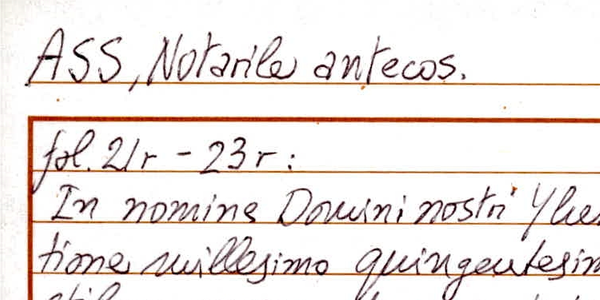 ASS, Notarile antecos.
fol. 21r - 23r:
In nomine Domini nostri Yhe
tione millesimo quingentesim